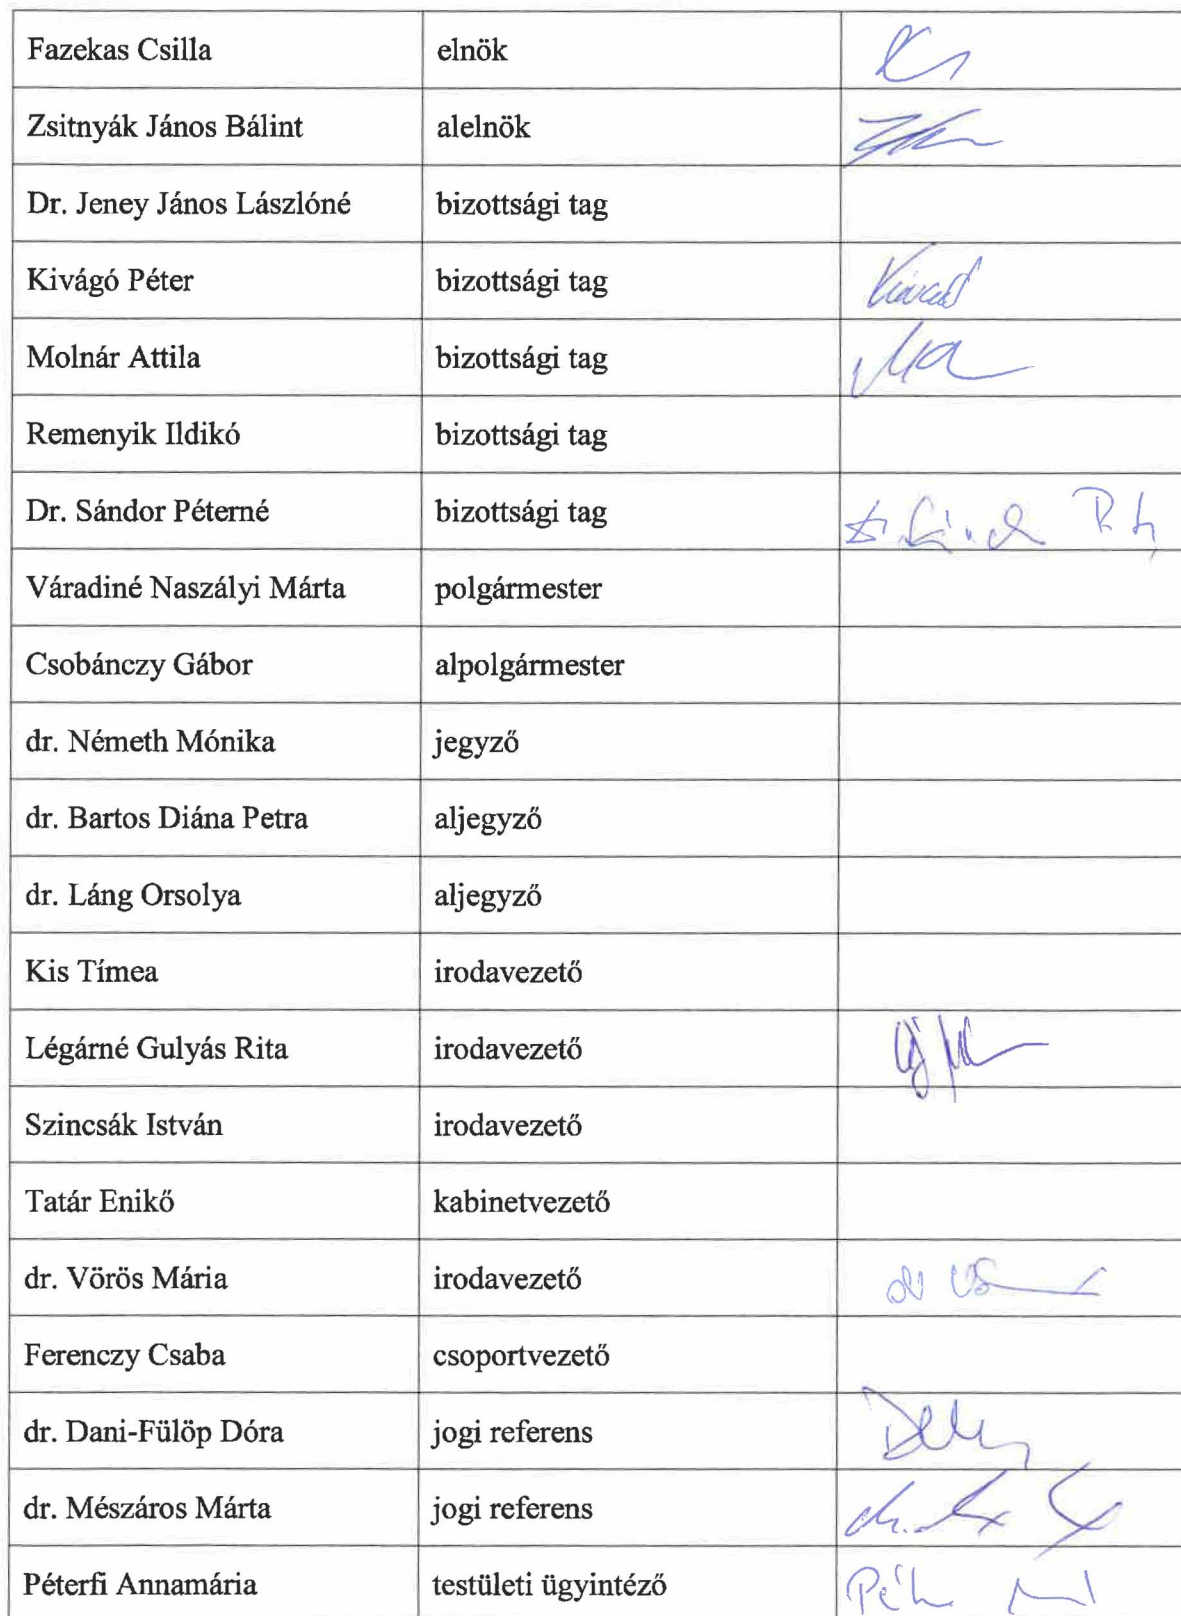 Fazekas Csilla elnök
Zsitnyák János Bálint alelnök
Dr. Jeney János Lászlóné bizottsági tag
Kivágó Péter bizottsági tag
Molnár Attila bizottsági tag
Remenyik Ildikó bizottsági tag
Dr. Sándor Péterné bizottsági tag
Váradiné Naszályi Márta polgármester
Csobánczy Gábor alpolgármester
dr. Németh Mónika jegyző
dr. Bartos Diána Petra aljegyző
dr. Láng Orsolya aljegyző
Kis Tímea irodavezető
Légárné Gulyás Rita irodavezető
Szincsák István irodavezető
Tatár Enikő kabinetvezető
dr. Vörös Mária irodavezető
Ferenczy Csaba csoportvezető
dr. Dani-Fülöp Dóra jogi referens
dr. Mészáros Márta jogi referens
Péterfi Annamária testületi ügyintéző